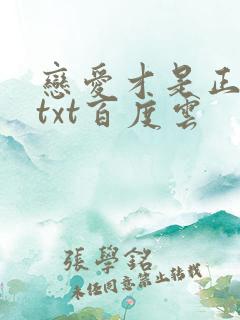 戀愛才是正
txt百度雲
張學銘
未任同意禁止转载